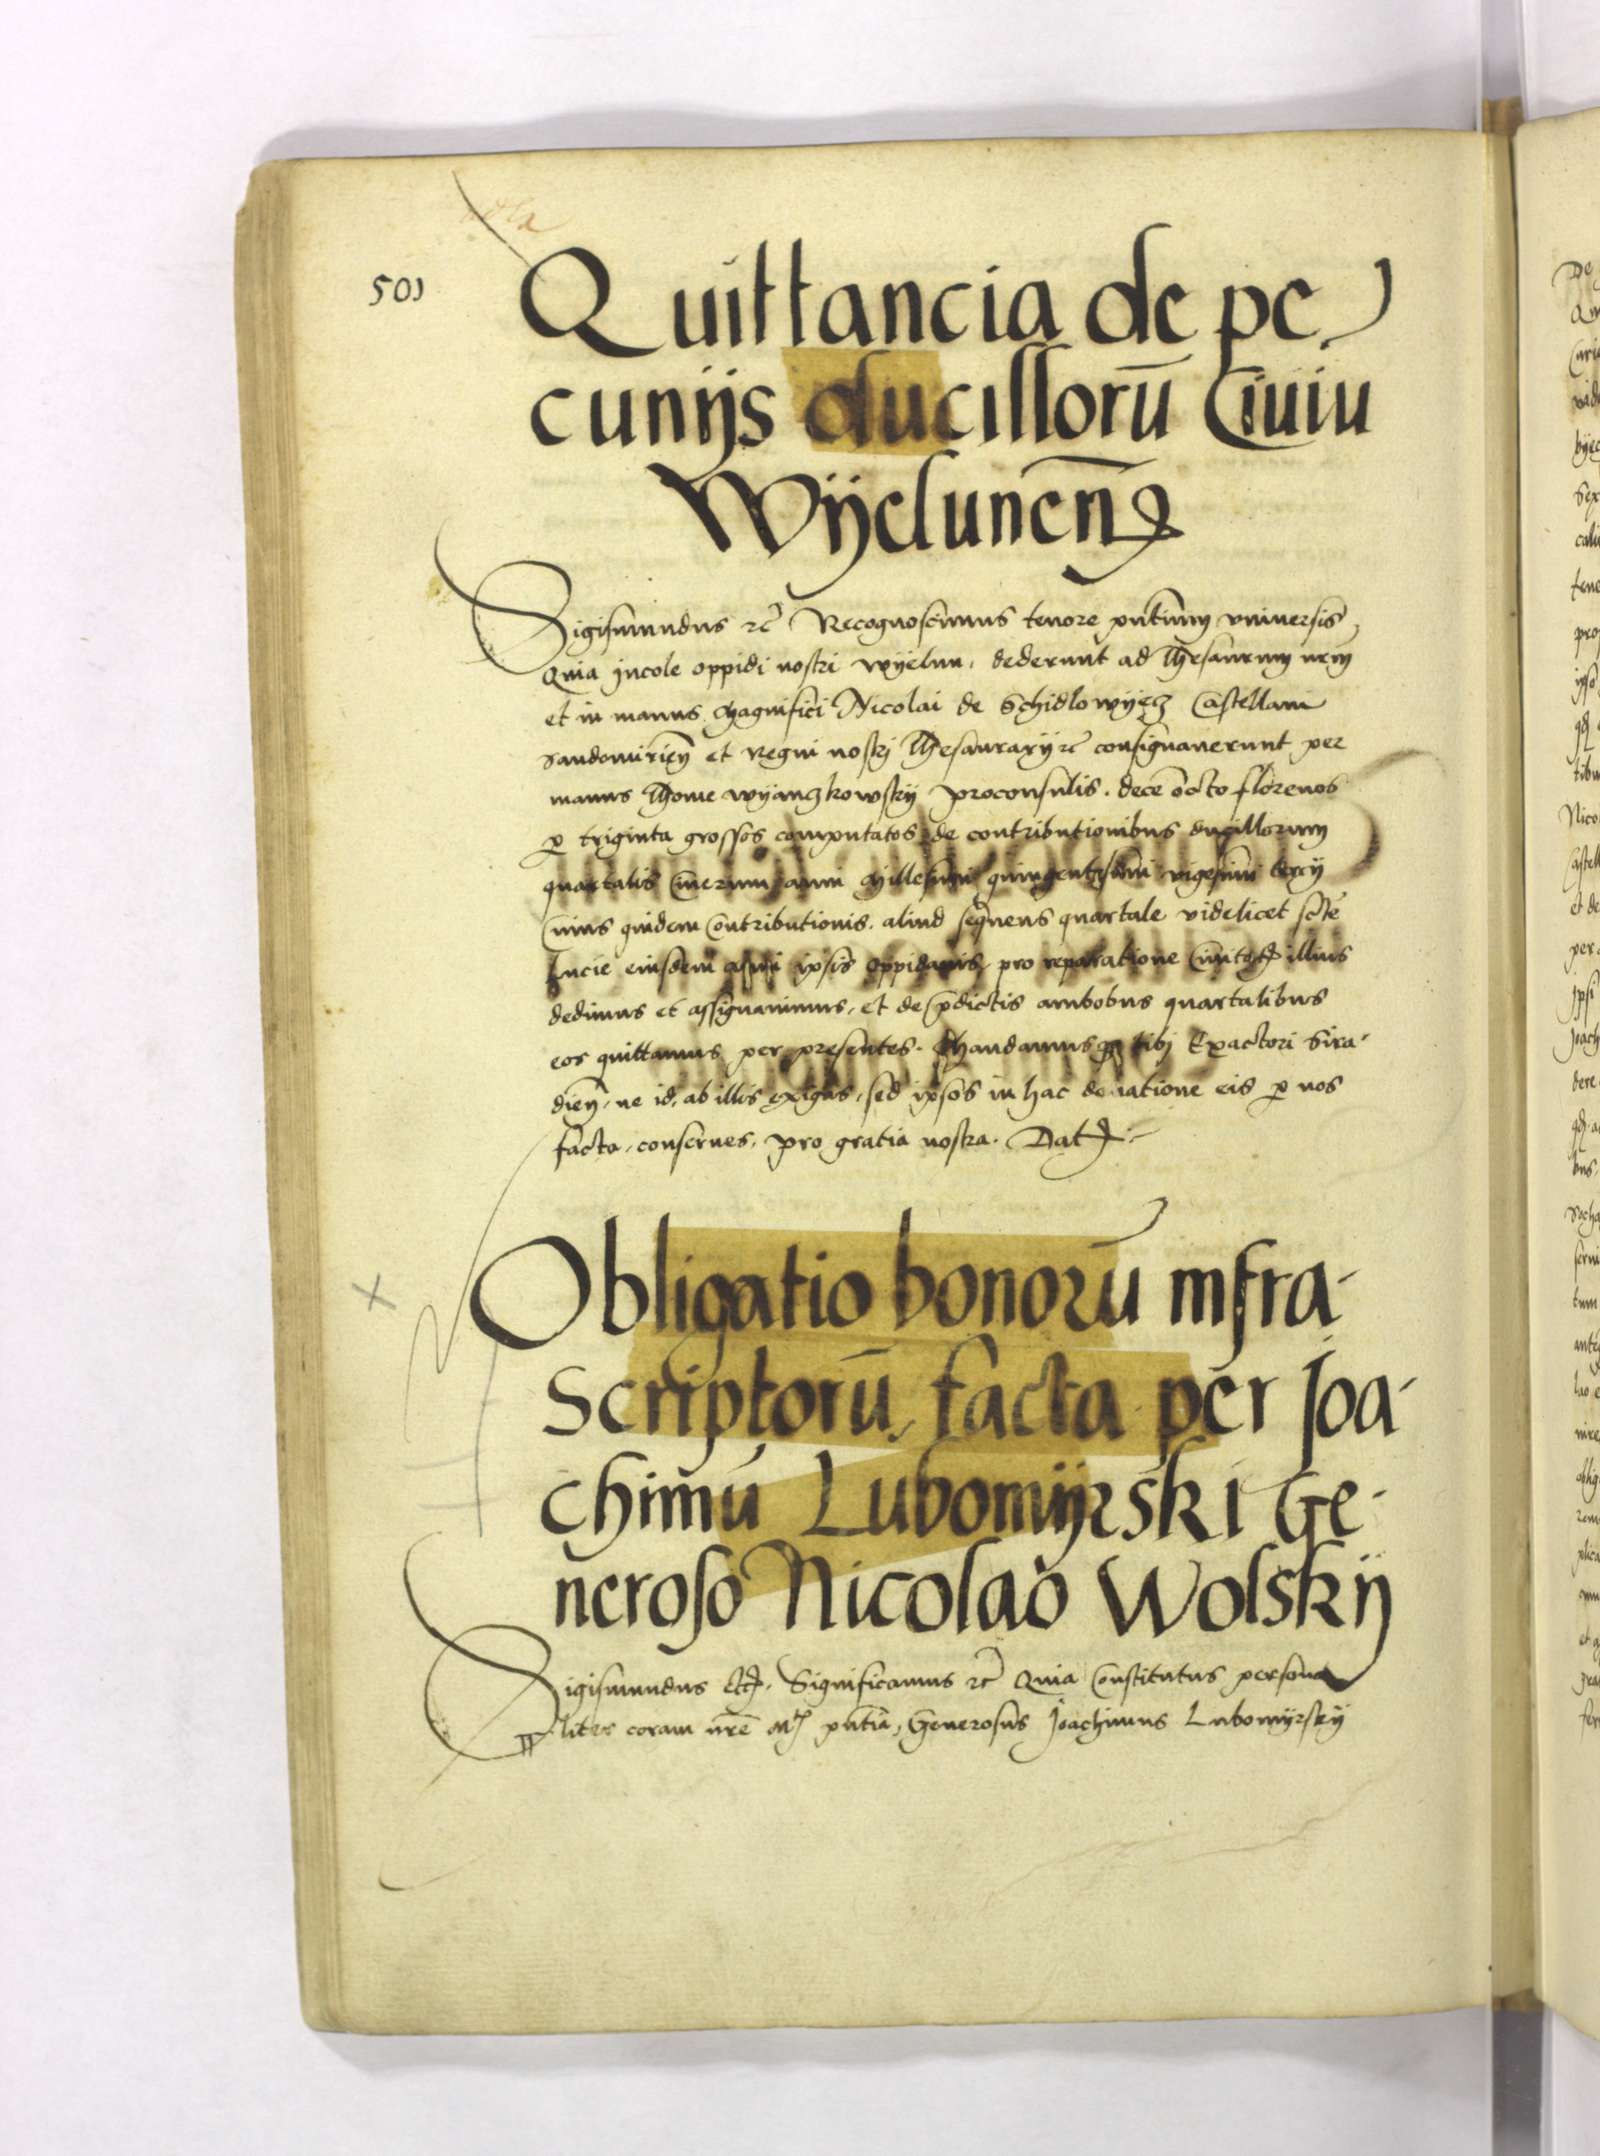 501
Quittancia de pe
cunijs ducillorū Ciuiu
Wijelunen̄
Sigismundus rc̄ Recognoscimus tenore pn̄tium vniuersis
Quia jncole oppidi nostri wyelun, dederunt ad Thesaurum nr̄m
et in manus Magnifici Nicolai de Schidlowyecz Castellani
Sandomirien̄ et Regni nostri Thesaurarij rc̄ consignauerunt per
manus Thome wyanczkowskij proconsulis. decē octo florenos
ꝑ triginta grossos computatos de contributionibus ducillorum
quartalis Cinerum anni Millesimi quingentesimi vigesimi tercij
Cuius quidem Contributionis. aliud sequens quartale videlicet sctē
Lucie eiusdem anni ipsis oppidanis, pro reparatione Ciuitatꝭ illius
dedimus et assignauimus, et de p̄dictis ambobus quartalibus
eos quittamus per presentes. Mandamusqꝫ tibj Exactori Sira-
dien̄, ne id, ab illis exigas, sed ipsos in hac donatione eis ꝑ nos
facta, conserues, pro gratia nostra. Datꝭ.
Obligatio bonorū infra-
scriptorū, facta per Joa-
chimū Lubomijrski Ge-
neroso Nicolao Wolskij
Sigismundus etcꝭ. Significamus rc̄ Quia Constitutus persona
liter coram nr̄e Mtꝭ pn̄tia, Generosus Joachimus Lubomyrskij